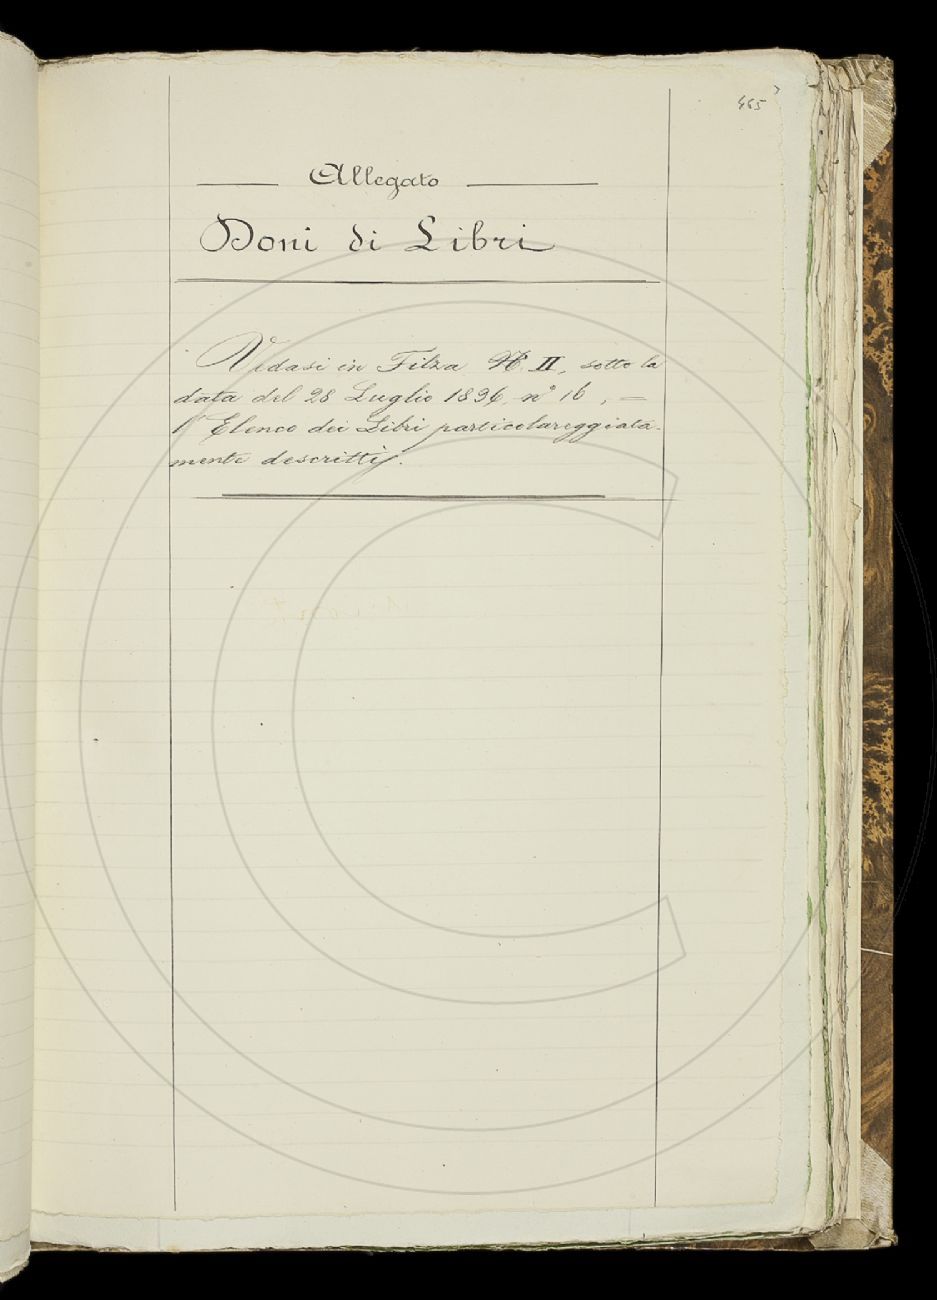 465
Allegato
Doni di Libri
Vedasi in Filza II, sotto la
data del 28 Luglio 1896, n° 16, =
l'Elenco dei Libri particolareggiata-
mente descritti.